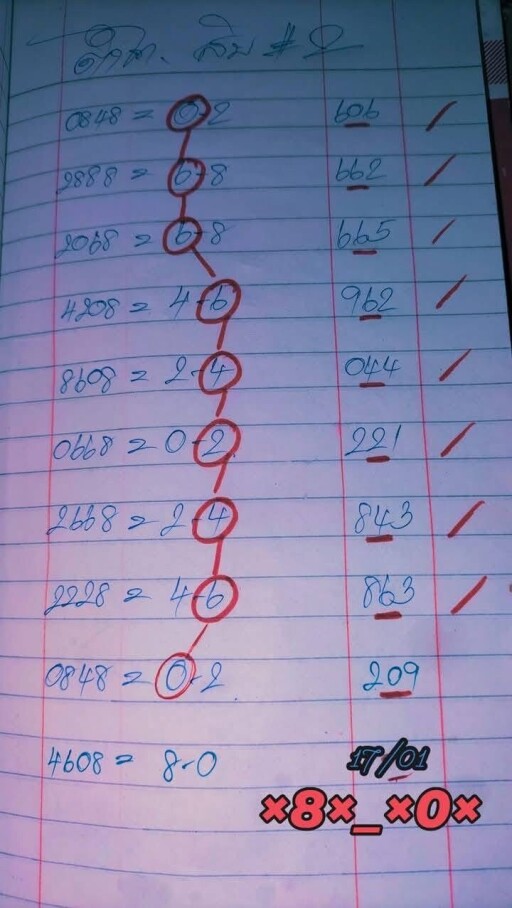 สิบ #2
0848 = 0-2 606 /
2888 = 6-8 662 /
2068 = 6-8 665 /
4208 = 4-6 962 /
8608 = 2-4 044 /
0668 = 0-2 221 /
2668 = 2-4 843 /
2228 = 4-6 863 /
0848 = 0-2 209
4608 = 8-0 17/01
×8×_×0×